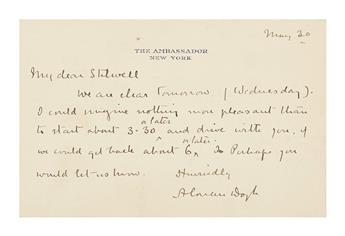 May 30
THE AMBASSADOR
NEW YORK
My dear Stilwell
We are clear tomorrow (Wednesday).
I could imagine nothing more pleasant than
or later
to start about 3.30 and drive with you, if
or later
we could get back about 6. Perhaps you
would let us know.
Hurriedly
A Conan Doyle